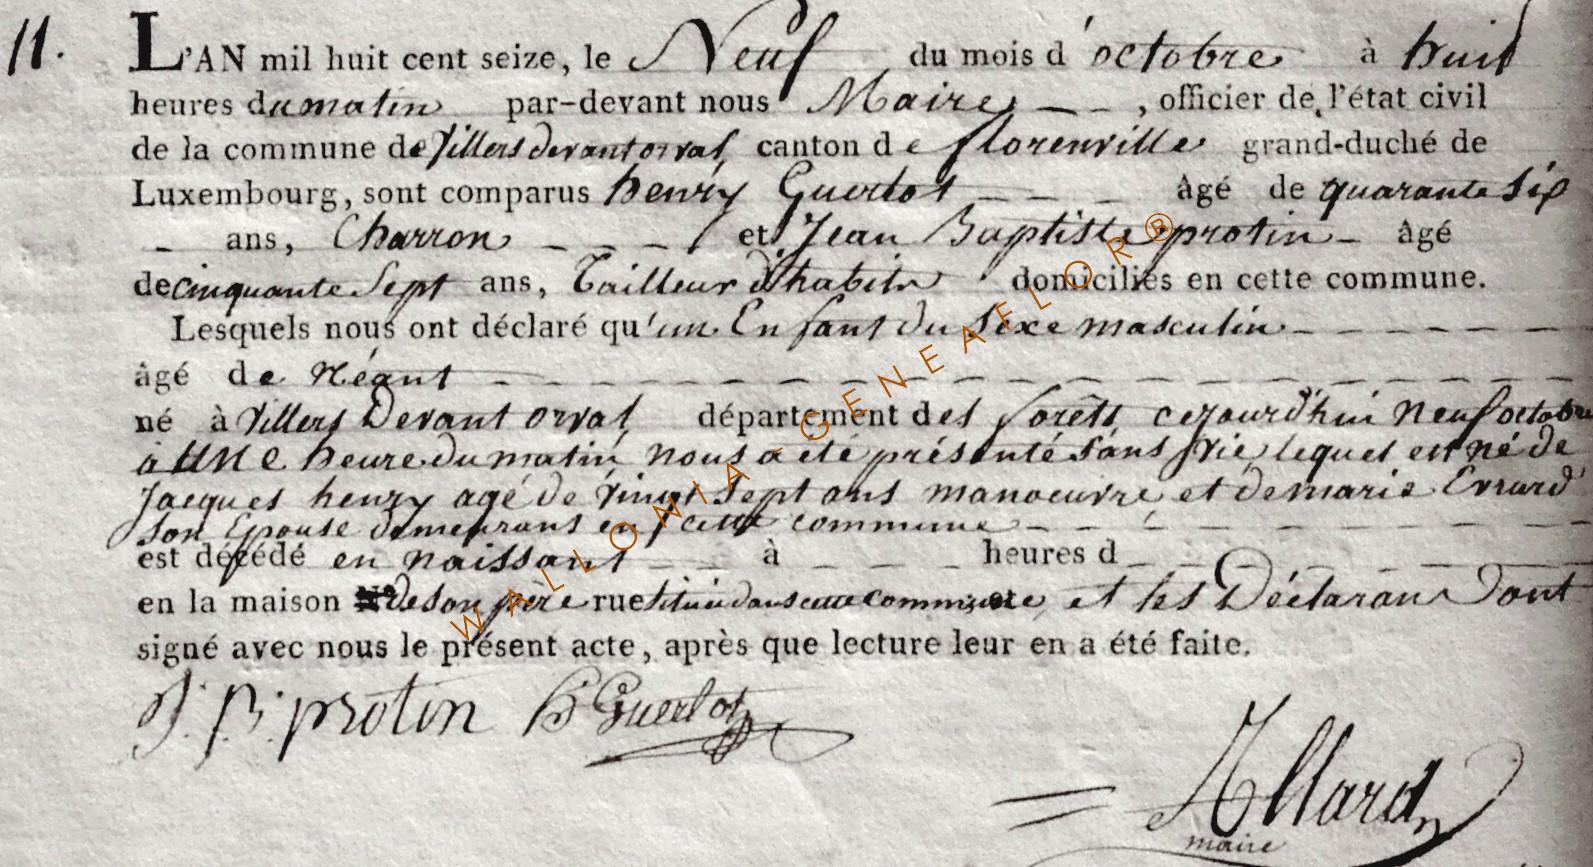 11.
L'AN mil huit cent seize, le Neuf du mois d'octobre à huit
heures du matin par-devant nous Maire — — , officier de l'état civil
de la commune de Villers devant orval canton de florenville grand-duché de
Luxembourg, sont comparus henry Guerlot — — — âgé de quarante Six
— ans, Charron — — — et Jean Baptiste protin — âgé
de cinquante Sept ans, Tailleur d'habits domiciliés en cette commune.
Lesquels nous ont déclaré qu'un Enfant du Sexe masculin — — — —
âgé de Néant — — — — — — — — — — — —
né à Villers Devant orval département des forêts, cejourd'hui Neuf octobre
à UNE heure du matin, nous a été présenté sans Vie, lequel est né de
Jacques henry agé de Vingt Sept ans manoeuvre, et de marie Errard
Son Epouse demeurans en cette commune — — — — — —
est décédé en naissant — — à — — — heures d — — — —
en la maison de son père rue située dans cette commune, et les Déclarans Dont
signé avec nous le présent acte, après que lecture leur en a été faite.
J. B. protin h Guerlot
Allard
maire
WALLONIA-GENEAFLOR®